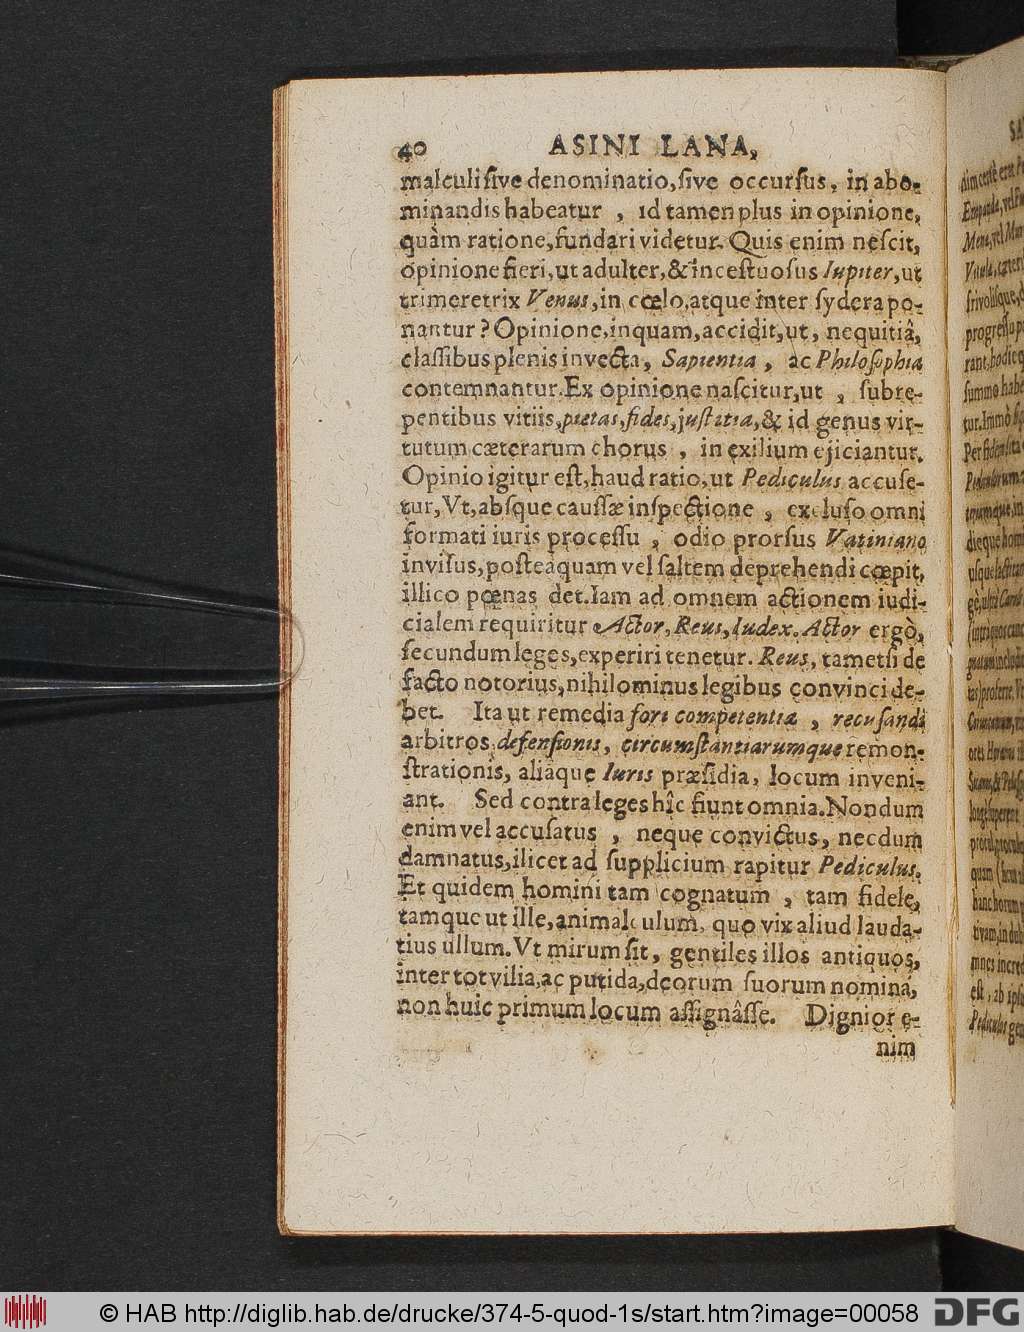 40 ASINI LANA,
malculi ſive denominatio, ſive occurſus, in abo-
minandis habeatur, id tamen plus in opinione,
quàm ratione, fundari videtur. Quis enim neſcit,
opinione fieri, ut adulter, & inceſtuoſus Iupiter, ut
trimeretrix Venus, in cœlo, atque inter ſydera po-
nantur? Opinione, inquam, accidit, ut, nequitiâ,
claſſibus plenis invecta, Sapientia, ac Philoſophia
contemnantur. Ex opinione naſcitur, ut, ſubre-
pentibus vitiis, pietas, fides, juſtitia, & id genus vir-
tutum cæterarum chorus, in exilium ejiciantur.
Opinio igitur eſt, haud ratio, ut Pediculus accuſe-
tur, Vt, abſque cauſſæ inſpectione, excluſo omni
formati iuris proceſſu, odio prorſus Vatiniano
inviſus, poſteaquam vel ſaltem deprehendi cœpit,
illico pœnas det. Iam ad omnem actionem iudi-
cialem requiritur Actor, Reus, Iudex. Actor ergò,
ſecundum leges, experiri tenetur. Reus, tametſi de
facto notorius, nihilominus legibus convinci de-
bet. Ita ut remedia fori competentiæ, recuſandi
arbitros, defenſionis, circumſtantiarumque remon-
ſtrationis, aliáque Iuris præſidia, locum inveni-
ant. Sed contra leges hîc fiunt omnia. Nondum
enim vel accuſatus, neque convictus, necdum
damnatus, ilicet ad ſupplicium rapitur Pediculus.
Et quidem homini tam cognatum, tam fidele,
tamque ut ille, animalculum, quo vix aliud lauda-
tius ullum. Vt mirum ſit, gentiles illos antiquos,
inter tot vilia, ac putida, deorum ſuorum nomina,
non huic primum locum aſſignâſſe. Dignior e-
nim
© HAB http://diglib.hab.de/drucke/374-5-quod-1s/start.htm?image=00058
DFG